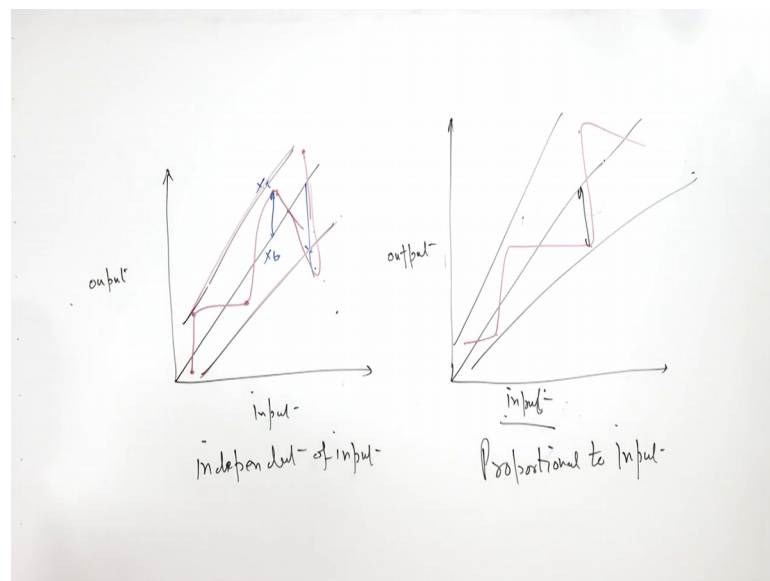 ouput
input
independent of input
output
input
Proportional to input